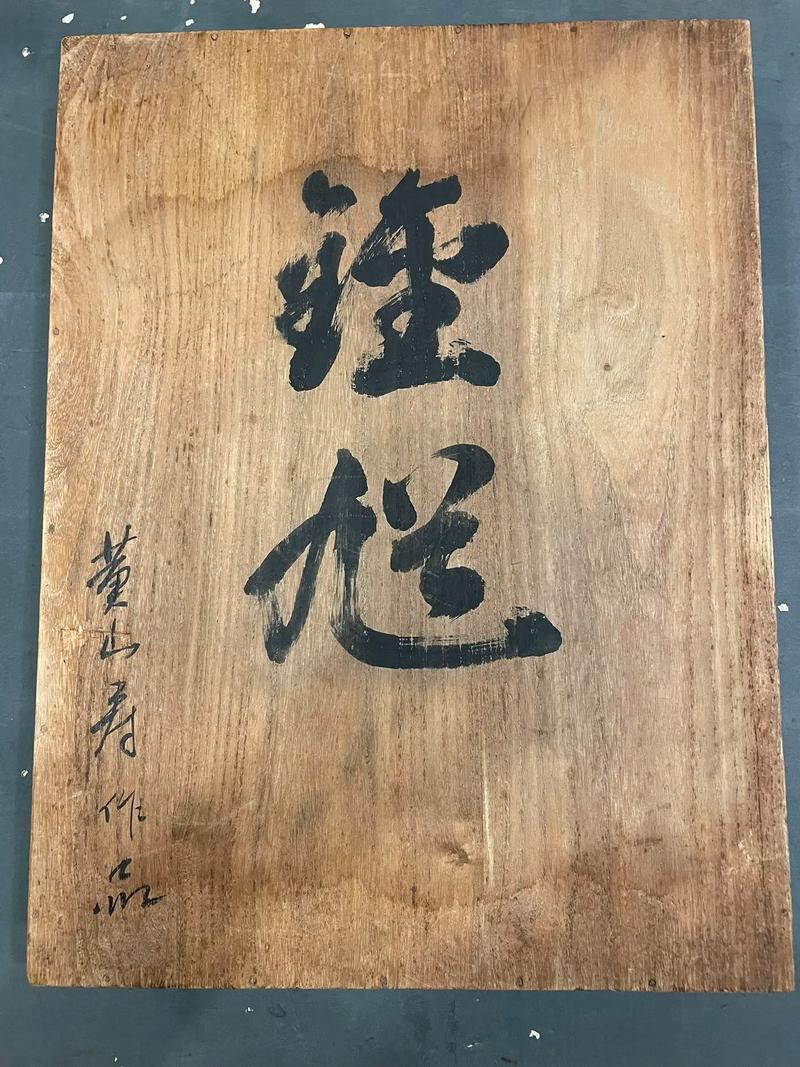 鍾馗
黄山寿作品